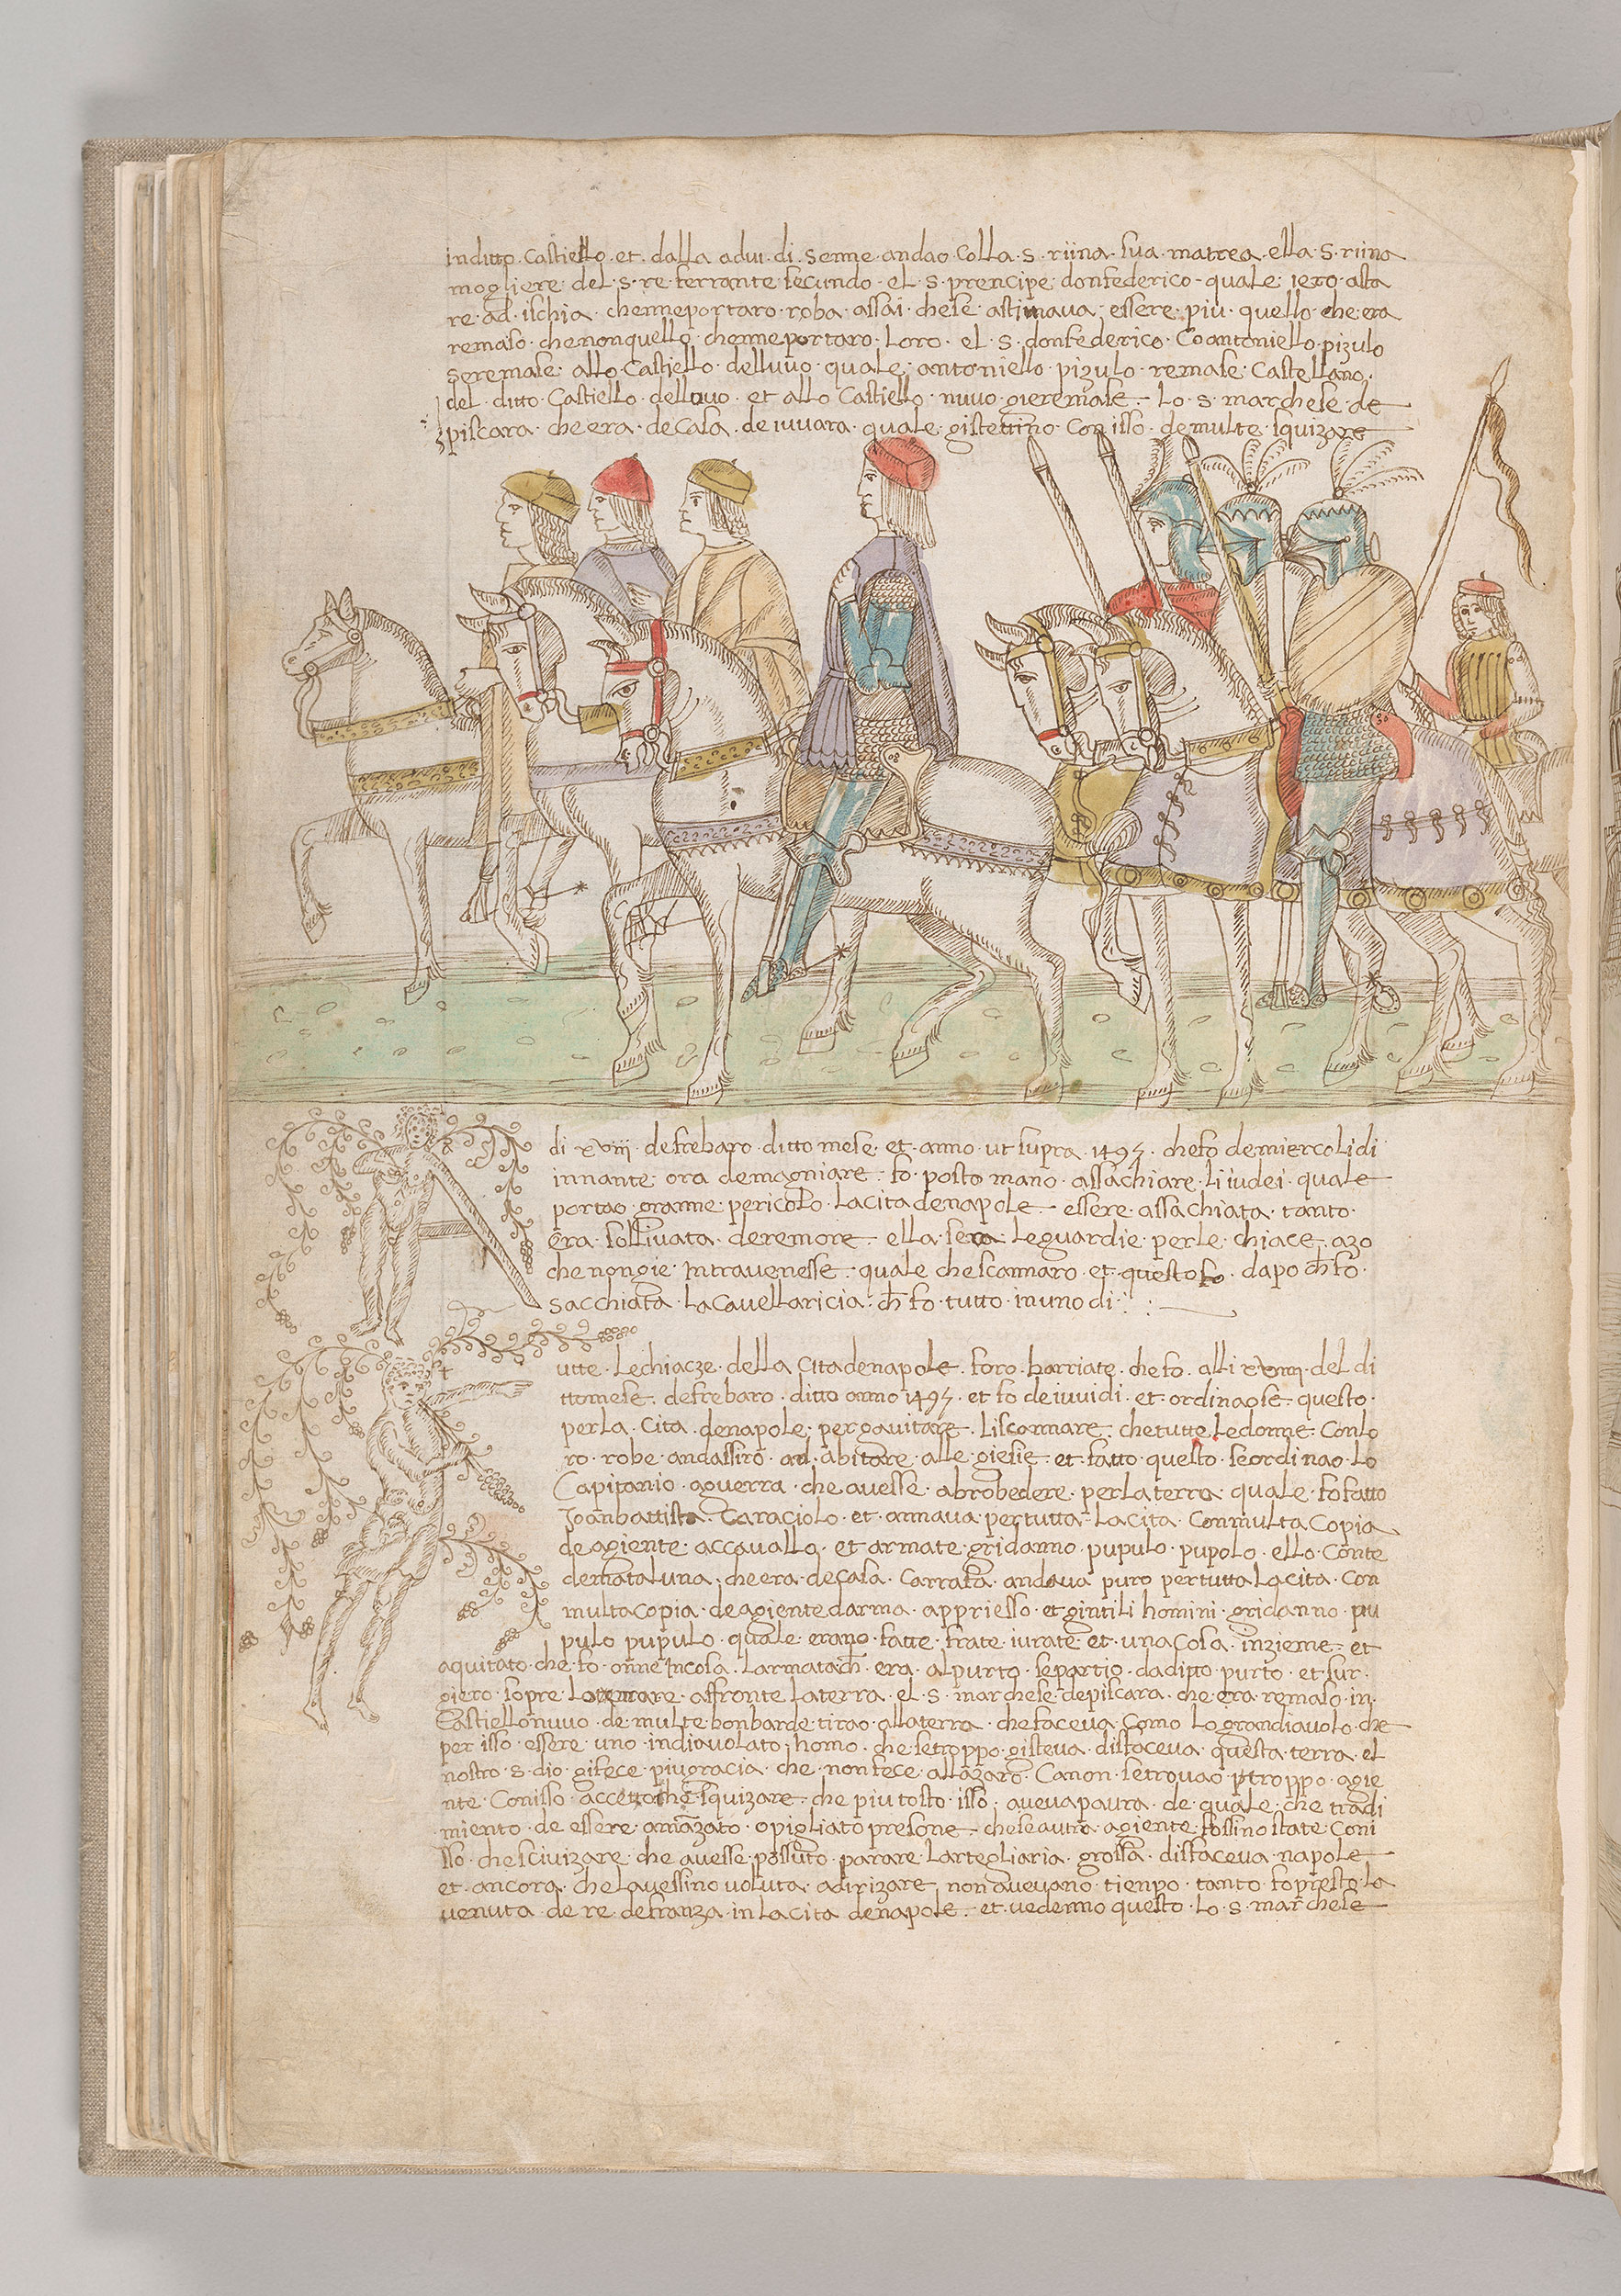 inditto · Castiello · et · dalla · adui · di · Senne · andao · Colla · S · riina · sua · matrea · ella · S · riina
mogliere · del · s · re · ferrante · secundo · el · S · prencipe · donfederico · quale · iero · asta
re · ad · ischia · chenneportaro · roba · assai · chese · astimava · essere · piu · quello · che era
remaso · chenonquello · chenneportaro · Loro · el · S · donfederico · Co antoniello · pizulo
seremase · allo Castiello · delluvo · quale · antoniello · pizulo · remase · Castellano ·
del · ditto · Castiello · dellouo · et allo Castiello · nuvo · gieremase · Lo · s · marchese · de
piscara · cheera · deCasa · de iuvara · quale · gistettino · Con isso · demulte · squizare
di xviii · defrebaro · ditto mese · et · anno · ut supra · 1495 · chefo demiercolidi
innante · ora demagniare · fo · posto mano · assachiare · Li iudei · quale
portao · granne · pericolo · Lacita denapole · essere · assachiata · tanto ·
era · sollivata · deremore · ella · sera · Leguardie · perle · chiace · azo
chenongie · Intravenesse · quale · chescannaro · et · questo fo · dapo ch̄ fo ·
sacchiata · LaCavellaricia · ch̄ fo · tutto · inuno di ·
utte · Lechiacze · della Citadenapole · foro · barriate · chefo · alli xviiii · del di
ttomese · defrebaro · ditto anno 1495 · et fo deiuvidi · et · ordinaose · questo ·
perla · Cita · denapole · pergavitare · Liscannare · chetutte Ledonne · Conlo
ro · robe · andassiro · ad · abitare · alle · giesie · et · fatto · questo · seordinao · Lo
Capitanio · aguerra · che avesse · abrobedere · perlaterra · quale · fofatto
Joanbattista · Caraciolo · et · annava · pertutta · Lacita · Conmulta Copia
deagiente · accavallo · et armate · gridanno · pupulo · pupolo · ello · Conte
demataluna · cheera · deCasa · Carrafa · andava puro pertutta Lacita · Con
multa Copia · deagiente darma · appriesso · et gintili homini · gridanno · pu
pulo pupulo · quale · erano · fatte · frate · iurate · et · unaCosa · inzieme · et
aquitato · che fo · onne Incosa · Larmatach̄ · era · alpurto · separtio · daditto · purto · et sur ·
giero · sopre · affronte Laterra · el · s · marchese · depiscara · che era · remaso · in ·
Castiellonuvo · de multe bonbarde tirao · allaterra · chefaceva Como Lo grandiavolo · che
per isso · essere · uno · indiavolato · homo · che setroppo · gisteva · disfaceva · questa · terra · el
nostro · s · dio · gifece · piugracia · che · nonfece · allazaro · Canon · setrovao · troppo · agie
nte · Conisso · accetto che squizare · che piu tosto · isso · avevapaura · de · quale · che tradi
miento · de essere · amazato · opigliato presone · che se autra · agiente · fossino state · Coni
sso · chescivizare · che avesse · possuto · parare · Lartegliaria · grossa · disfaceva · napole
et · ancora · chelavessino voluta · adirizare · non avevano · tienpo · tanto · fopresto · la
venuta · de re · defranza · in La cita denapole · et · vedenno questo · Lo · S · marchese